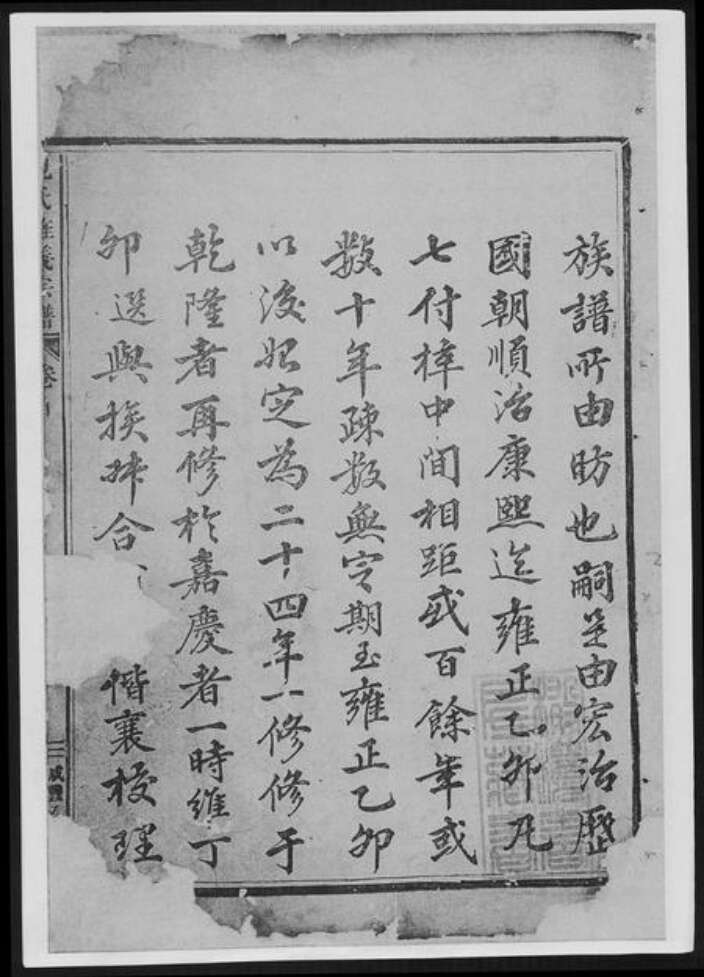 族譜所由昉也嗣是由宏治歷
國朝順治康熙迄雍正乙卯凡
七付梓中間相距或百餘年或
數十年疎數無定期至雍正乙卯
以後始定為二十四年一修修于
乾隆者再修於嘉慶者一時維丁
卯選與族姓合
偕襄校理
氏 義宗譜
卷